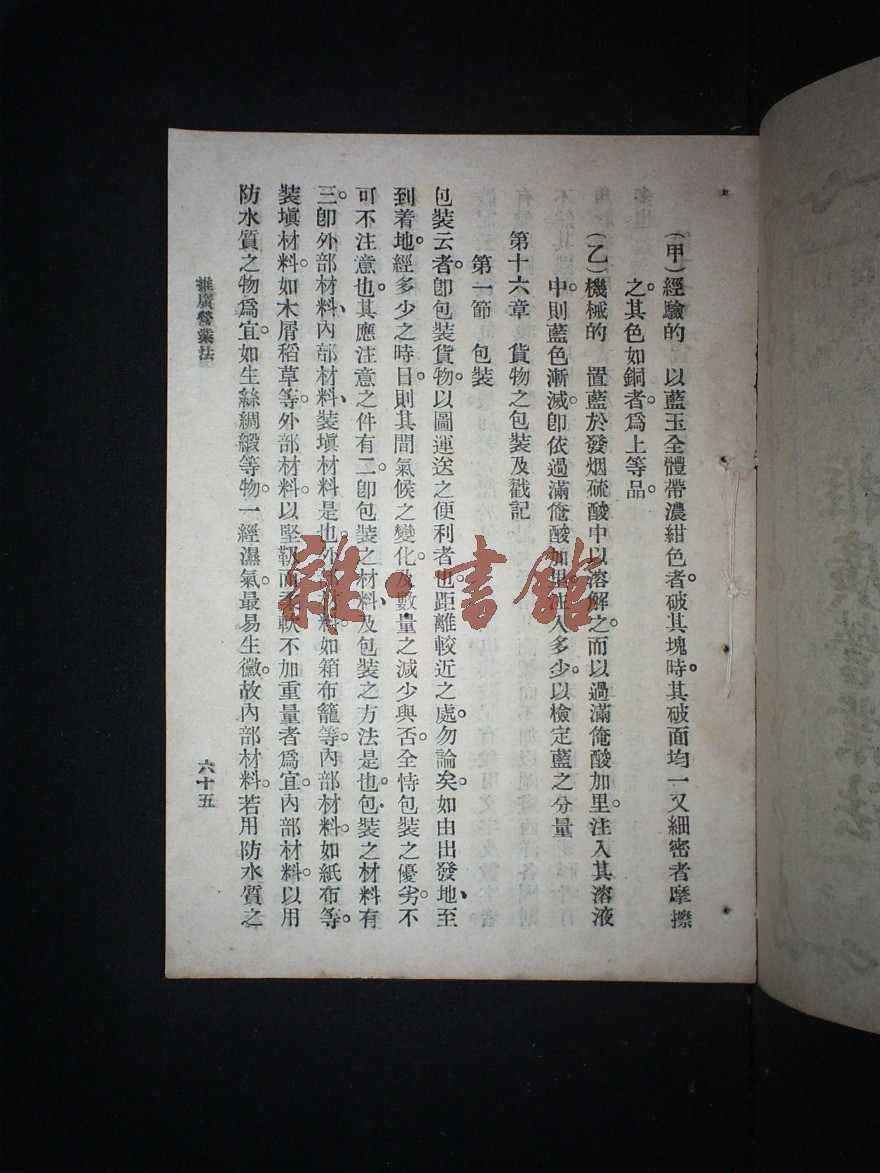 （甲）經驗的　以藍玉全體帶濃紺色者。破其塊時。其破面均一又細密者摩擦
之。其色如銅者。爲上等品。
（乙）機械的　置藍於發烟硫酸中以溶解之。而以過滿俺酸加里。注入其溶液
中。則藍色漸滅。卽依過滿俺酸加里。注入多少。以檢定藍之分量
第十六章　貨物之包裝及戳記
第一節　包裝
包裝云者。卽包裝貨物。以圖運送之便利者也。距離較近之處。勿論矣。如由出發地、至
到着地。經多少之時日。則其間氣候之變化。及數量之減少與否。全恃包裝之優劣。不
可不注意也。其應注意之件有二。卽包裝之材料、及包裝之方法是也。包裝之材料有
三。卽外部材料、內部材料、裝塡材料是也。外部材料。如箱布籠等。內部材料。如紙布等。
裝塡材料。如木屑稻草等。外部材料。以堅靱而柔軟不加重量者爲宜。內部材料。以用
防水質之物爲宜。如生絲綢緞等物。一經濕氣。最易生黴。故內部材料。若用防水質之
推廣營業法
六十五
雜·書館